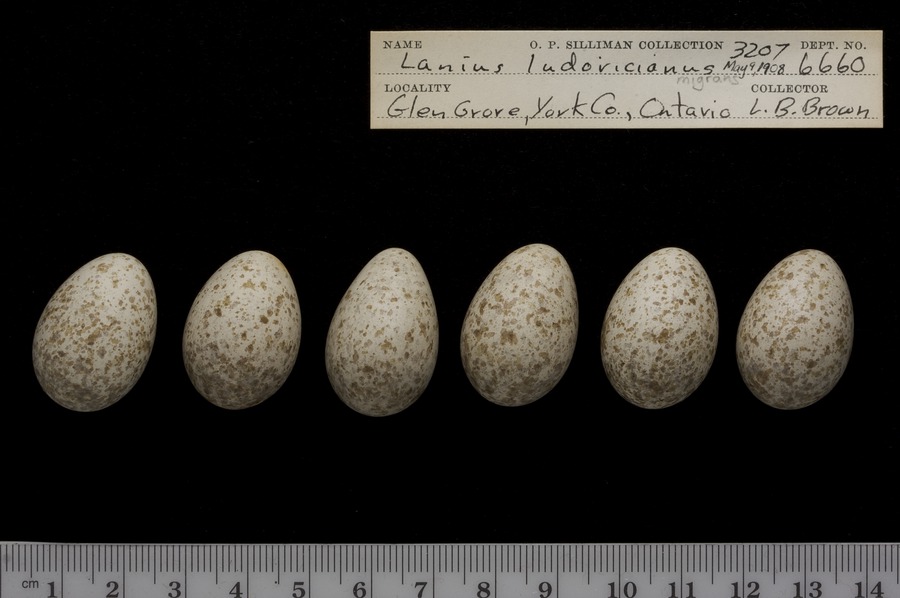 NAME O. P. SILLIMAN COLLECTION 3207 DEPT. NO.
Lanius ludovicianus May 9, 1908 6660
migrans
LOCALITY COLLECTOR
Glen Grove, York Co., Ontario L. B. Brown
cm 1 2 3 4 5 6 7 8 9 10 11 12 13 14